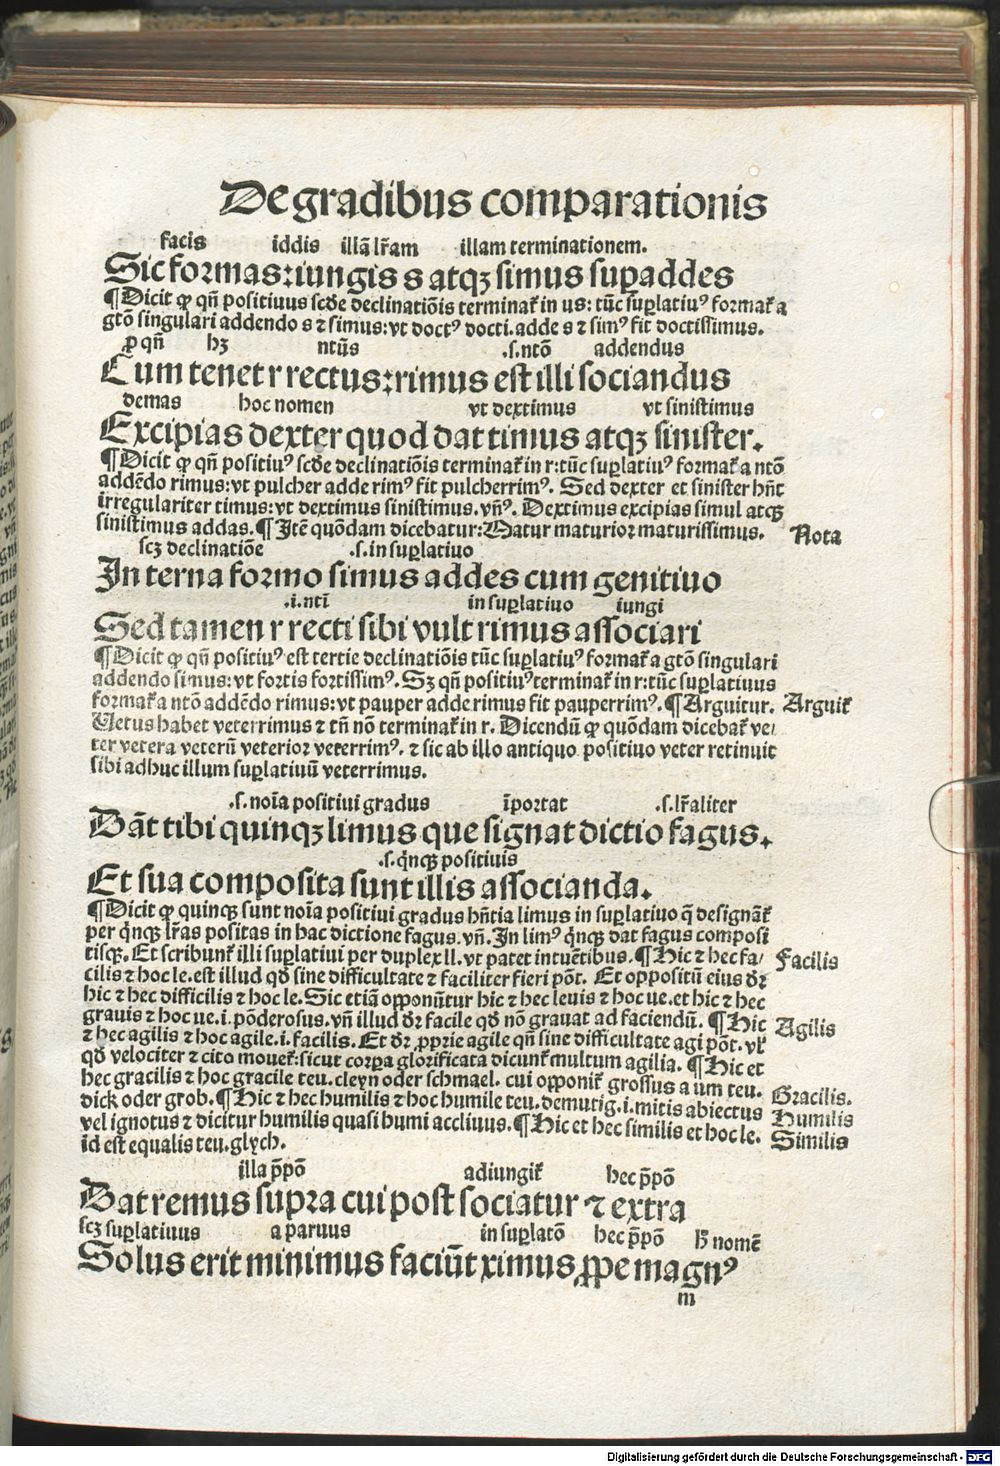 De gradibus comparationis
facis iddis illã lr̃am illam terminationem.
Sic formas: iungis s atqꝫ simus suꝑaddes
¶ Dicit ꝙ qñ positiuus scd̃e declinatiõis terminat᷑ in us: tũc suꝑlatiuꝰ format᷑ a
gtõ singulari addendo s ⁊ simus: vt doctꝰ docti. adde s ⁊ simꝰ fit doctissimus.
ꝙ qñ hꝫ ntũs .s. ntõ addendus
Cum tenet r rectus: rimus est illi sociandus
demas hoc nomen vt dextimus vt sinistimus
Excipias dexter quod dat timus atqꝫ sinister.
¶ Dicit ꝙ qñ positiuꝰ scd̃e declinatiõis terminat᷑ in r: tũc suꝑlatiuꝰ format᷑ a ntõ
addẽdo rimus: vt pulcher adde rimꝰ fit pulcherrimꝰ. Sed dexter et sinister hñt
irregulariter timus: vt dextimus sinistimus. vñꝰ. Dextimus excipias simul atqꝫ
sinistimus addas. ¶ Itẽ quõdam dicebatur: Matur maturior maturissimus. Nota
scꝫ declinatiõe .s. in suꝑlatiuo
In terna formo simus addes cum genitiuo
.i. ntĩ in suꝑlatiuo iungi
Sed tamen r recti sibi vult rimus associari
¶ Dicit ꝙ qñ positiuꝰ est tertie declinatiõis tũc suꝑlatiuꝰ format᷑ a gtõ singulari
addendo simus: vt fortis fortissimꝰ. Sꝫ qñ positiuꝰ terminat᷑ in r: tũc suꝑlatiuus
format᷑ a ntõ addẽdo rimus: vt pauper adde rimus fit pauperrimꝰ. ¶ Arguitur. Arguit᷑
Uetus habet veterrimus ⁊ tñ nõ terminat᷑ in r. Dicendũ ꝙ quõdam dicebat᷑ ve/
ter vetera veterũ veterior veterrimꝰ. ⁊ sic ab illo antiquo positiuo veter retinuit
sibi adhuc illum suꝑlatiuũ veterrimus.
.s. noĩa positiui gradus ĩportat .s. lr̃aliter
Dãt tibi quinqꝫ limus que signat dictio fagus.
.s. q̇nqꝫ positiuis
Et sua composita sunt illis associanda.
¶ Dicit ꝙ quinqꝫ sunt noĩa positiui gradus hñtia limus in suꝑlatiuo q̃ designãt᷑
per q̇nqꝫ lr̃as positas in hac dictione fagus. vñ. In limꝰ q̇nqꝫ dat fagus composi
tisqꝫ. Et scribunt᷑ illi suꝑlatiui per duplex ll. vt patet intuẽtibus. ¶ Hic ⁊ hec fa/ Facilis
cilis ⁊ hoc le. est illud qđ sine difficultate ⁊ faciliter fieri põt. Et oppositũ eius dr̃
hic ⁊ hec difficilis ⁊ hoc le. Sic etiã opponũtur hic ⁊ hec leuis ⁊ hoc ue. et hic ⁊ hec
grauis ⁊ hoc ue. i. põderosus. vñ illud dr̃ facile qđ nõ grauat ad faciendũ. ¶ Hic Agilis
⁊ hec agilis ⁊ hoc agile. i. facilis. Et dr̃ ꝓprie agile qñ sine difficultate agi põt. vl᷑
qđ velociter ⁊ cito mouet᷑: sicut corꝑa glorificata dicunt᷑ multum agilia. ¶ Hic et
hec gracilis ⁊ hoc gracile teu. cleyn oder schmael. cui opponit᷑ grossus a um teu.
dick oder grob. ¶ Hic ⁊ hec humilis ⁊ hoc humile teu. demutig. i. mitis abiectus Gracilis.
vel ignotus ⁊ dicitur humilis quasi humi accliuus. ¶ Hic et hec similis et hoc le. Humilis
id est equalis teu. glych. Similis
illa p̃põ adiungit᷑ hec p̃põ
Dat remus supra cui post sociatur ⁊ extra
scꝫ suꝑlatiuus a paruus in suꝑlatõ hec p̃põ h̃ nomẽ
Solus erit minimus faciũt ximus ꝓpe magnꝰ
m
Digitalisierung gefördert durch die Deutsche Forschungsgemeinschaft - DFG